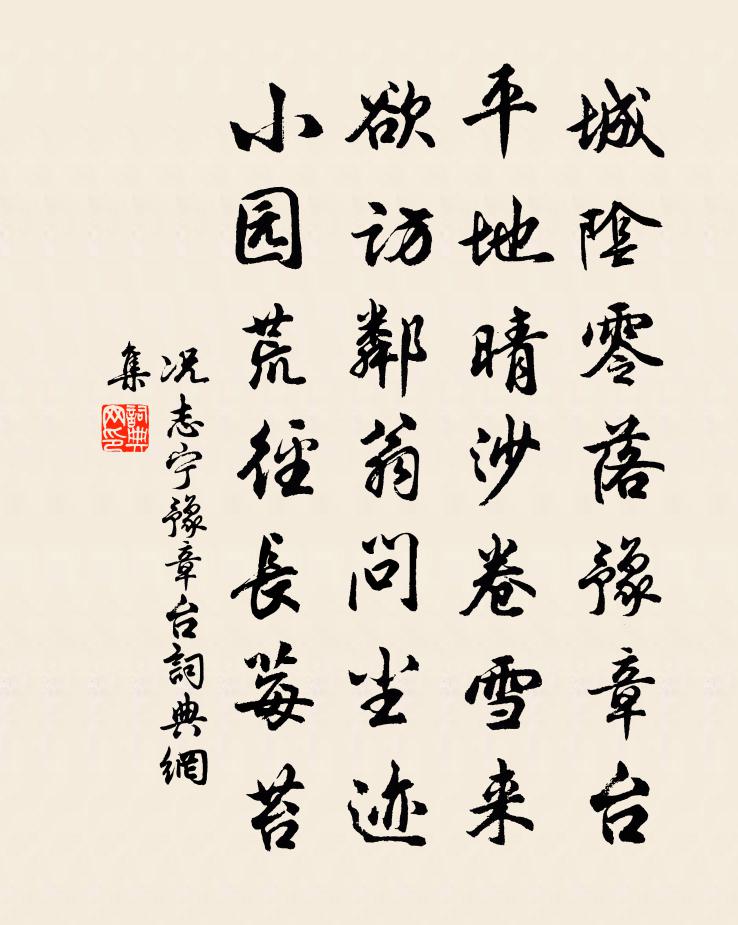 城陰零落豫章台
平地晴沙卷雪来
欲访鄰翁问尘迹
小园荒徑長莓苔
况志宁豫章台詞典網
集
詞典网印